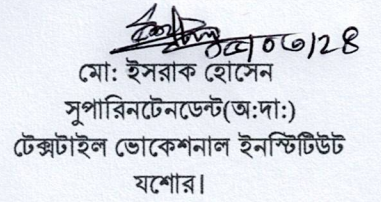 মো: ইসরাক হোসেন
সুপারিনটেনডেন্ট(অ:দা:)
টেক্সটাইল ভোকেশনাল ইনস্টিটিউট
যশোর।